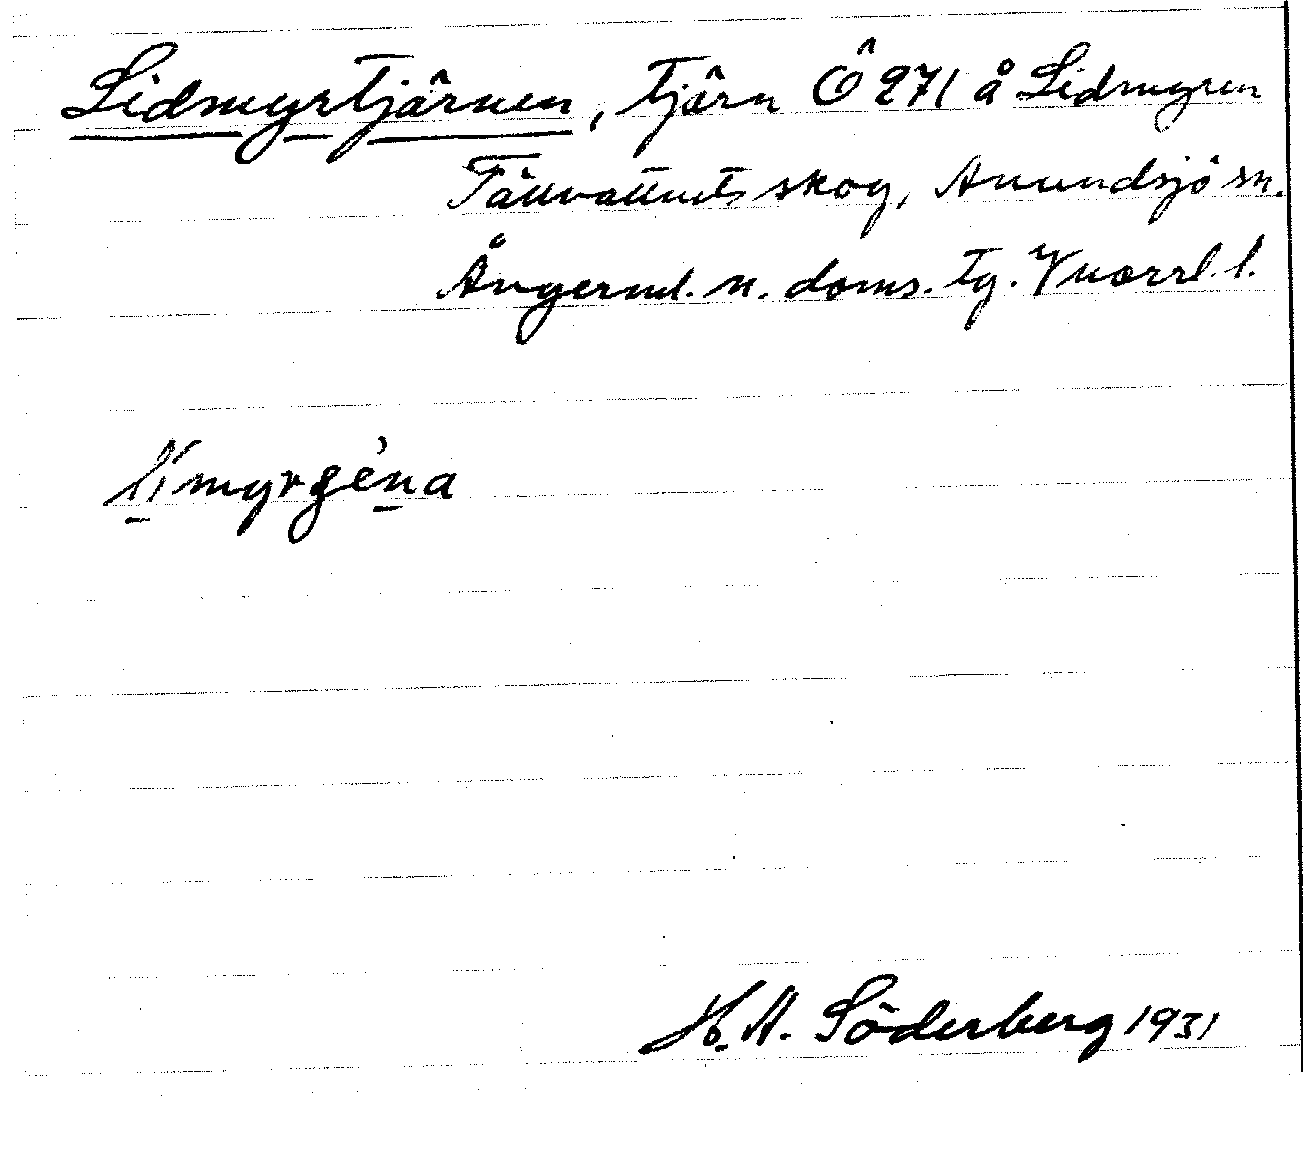 Lidmyrtjärnen, tjärn Ö 271 å Lidmyren
Tällvattnets skog, Anundsjö sn.
Ångerml. n. doms. tg. Västernorrl. l.
H. A. Söderberg 1931